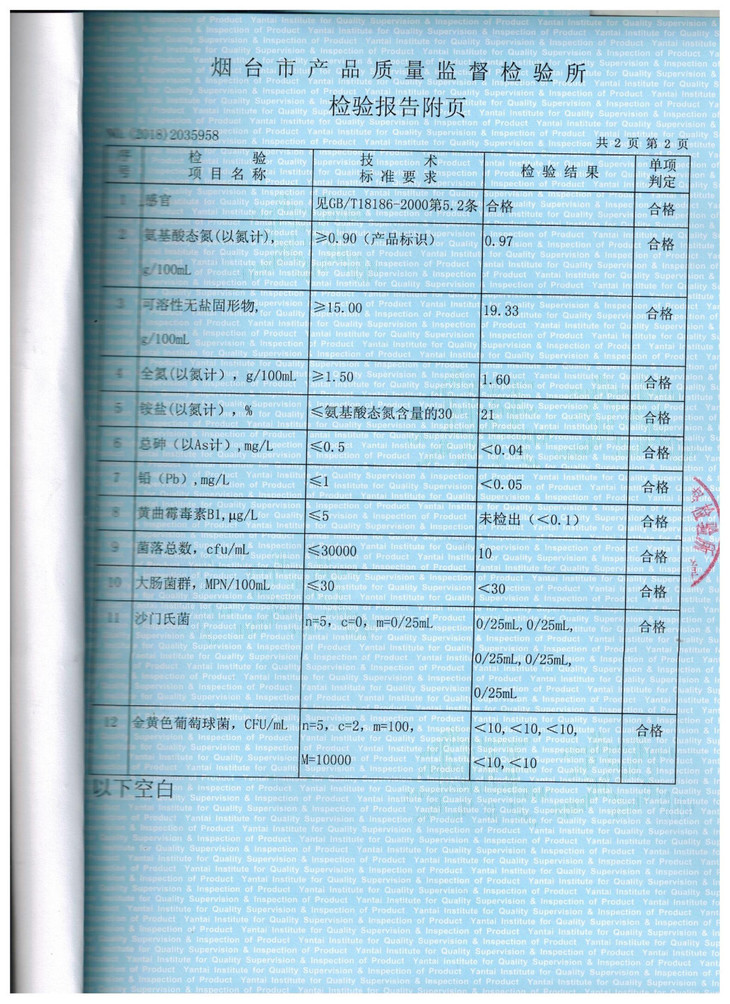 烟台市产品质量监督检验所
检验报告附页
NO.(2018)2035958
共 2 页 第 2 页
序号 检验项目名称 技术标准要求 检验结果 单项判定
1 感官 见GB/T18186-2000第5.2条 合格 合格
2 氨基酸态氮(以氮计), ≥0.90（产品标识） 0.97 合格
g/100mL
3 可溶性无盐固形物, ≥15.00 19.33 合格
g/100mL
4 全氮(以氮计)，g/100mL ≥1.50 1.60 合格
5 铵盐(以氮计)，% ≤氨基酸态氮含量的30 21 合格
6 总砷（以As计）,mg/L ≤0.5 <0.04 合格
7 铅（Pb）,mg/L ≤1 <0.05 合格
8 黄曲霉毒素B1,μg/L ≤5 未检出（<0.1） 合格
9 菌落总数，cfu/mL ≤30000 10 合格
10 大肠菌群，MPN/100mL ≤30 <30 合格
11 沙门氏菌 n=5，c=0，m=0/25mL 0/25mL,0/25mL, 合格
0/25mL,0/25mL,
0/25mL
12 金黄色葡萄球菌，CFU/mL n=5，c=2，m=100， <10,<10,<10, 合格
M=10000 <10,<10
以下空白